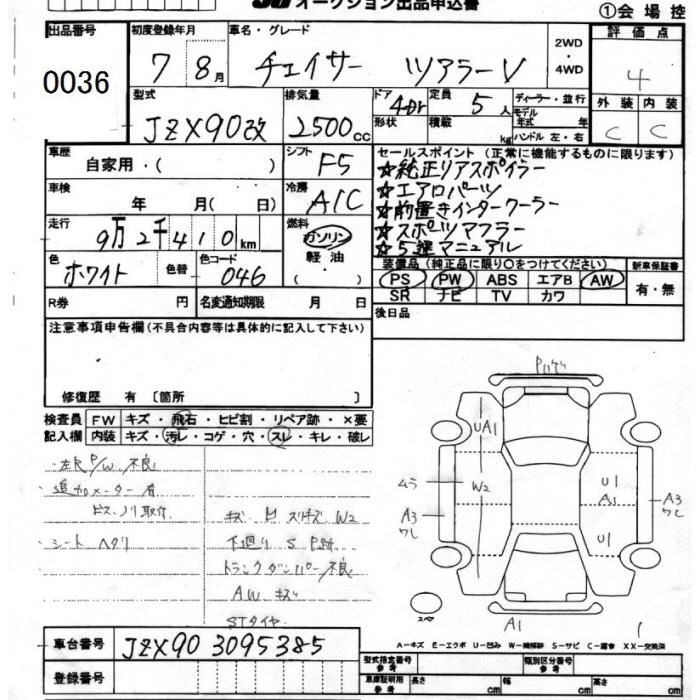 オークション出品申込書
①会場控
出品番号
0036
初度登録年月
7 8月
車名・グレード
チェイサー ツアラーV
2WD・4WD
評価点
4
型式
JZX90改
排気量
2500cc
ドア 4Dr
形状
定員 5人
積載 kg
ディーラー・並行
モデル年式 年
ハンドル 左・右
外装 内装
C C
車歴
自家用・( )
シフト
F5
セールスポイント(正常に機能するものに限ります)
☆純正リアスポイラー
☆エアロパーツ
☆前置きインタークーラー
☆スポーツマフラー
☆5速マニュアル
車検
年 月(日)
冷房
A/C
走行
9万2千410km
燃料
ガソリン
軽油
( )
色
ホワイト
色替
色コード
046
装備品(純正品に限り○をつけてください)
新車保証書
PS PW ABS エアB AW
SR ナビ TV カワ
有・無
R券 円
名変通知期限 月 日
後日品
注意事項申告欄(不具合内容等は具体的に記入して下さい)
修復歴 有〔箇所 〕
検査員記入欄
FW キズ・飛石・ヒビ割・リペア跡・×要
内装 キズ・汚レ・コゲ・穴・スレ・キレ・破レ
・左R P/W 不良
追加メーター有
ビス、ノリ取付
シートヘタリ
キズ M スリキズ W2
下廻り S P跡
トランクダンパー不良
AW キズ
STタイヤ
Pハゲ
UA1
W2
ムラ
A3
ワレ
U1
A1
U1
A3
ワレ
スペア
A1
1
A−キズ E−エクボ U−凹み W−補修跡 S−サビ C−腐食 XX−交換済
車台番号
JZX90 3095385
登録番号
型式指定番号
参考
類別区分番号
参考
車庫証明用
参考
長さ cm
幅 cm
高さ cm